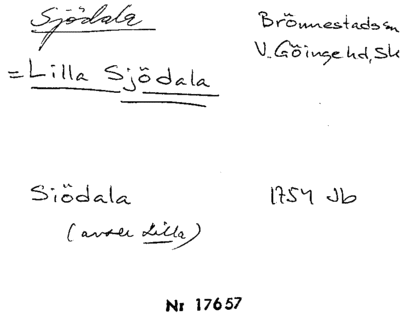 Sjödala
Brönnestads sn
V. Göinge hd, Sk
= Lilla Sjödala
Siödala
1754 Jb
(avser Lilla)
Nr 17657